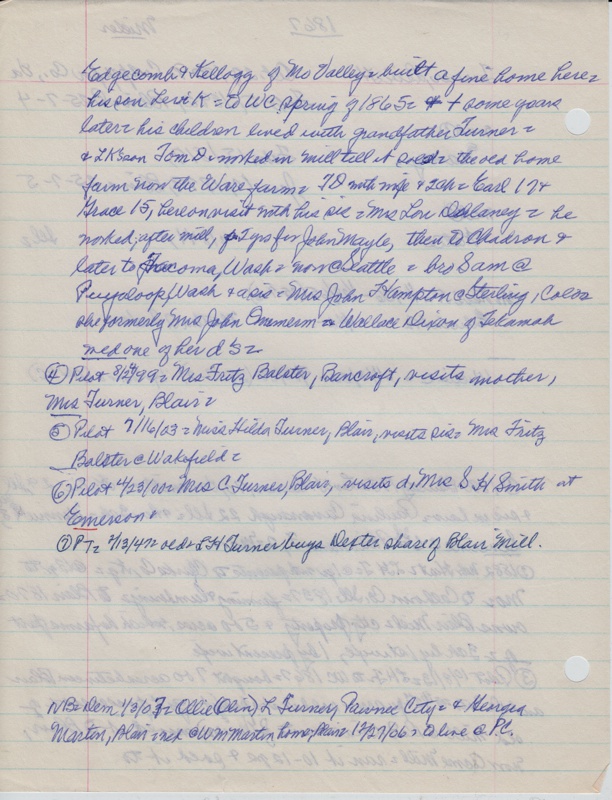 Edgecomb & Kellogg of Mo Valley = built a fine home here =
his son Levi K = to WC spring of 1865 = & + some years
later = his children lived with grandfather Turner =
& LK's son Tom D = worked in mill till it sold = the old home
farm now the Ware farm = TD with wife & 2ch = Earl 17 &
Grace 15, here on visit with his sis = Mrs Lou Delaney = he
worked, after mill, 2 yrs for John Mayle, then to Chadron &
later to Tacoma, Wash = now @ Seattle = bro Sam @
Puyaloop, Wash & a sis = Mrs John Hampton @ Sterling, Colo =
she formerly Mrs John = Wallace Dixon of Tekamah
med one of her d's =
④ Pilot 8/2/99 = Mrs Fritz Balster, Bancroft, visits mother,
Mrs Turner, Blair =
⑤ Pilot 7/16/03 = Miss Hilda Turner, Blair, visits sis = Mrs Fritz
Balster @ Wakefield =
⑥ Pilot 4/23/00 = Mrs C. Turner, Blair, visits d, Mrs S H Smith at
Emerson =
⑦ PT = 2/3/472 = LH Turner buys Dexter share of Blair Mill.
NB = Dem 1/3/07 = Ollie (Olin) L Turner, Pawnee City = & Georgia
Martin, Blair = med @ Wm Martin home, Blair = 12/27/06 = to live @ P.C.